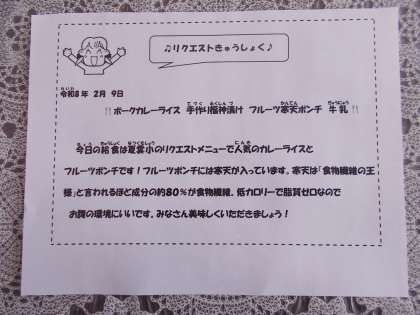 ♫リクエストきゅうしょく♪
令和8年 2月 9日
🍴ポークカレーライス 手作り福神漬け フルーツ寒天ポンチ 牛乳🍴
今日の給食は夏雲小のリクエストメニューで人気のカレーライスと
フルーツポンチです！フルーツポンチには寒天が入っています。寒天は「食物繊維の王
様」と言われるほど成分の約80％が食物繊維。低カロリーで脂質ゼロなので
お腹の環境にいいです。みなさん美味しくいただきましょう！